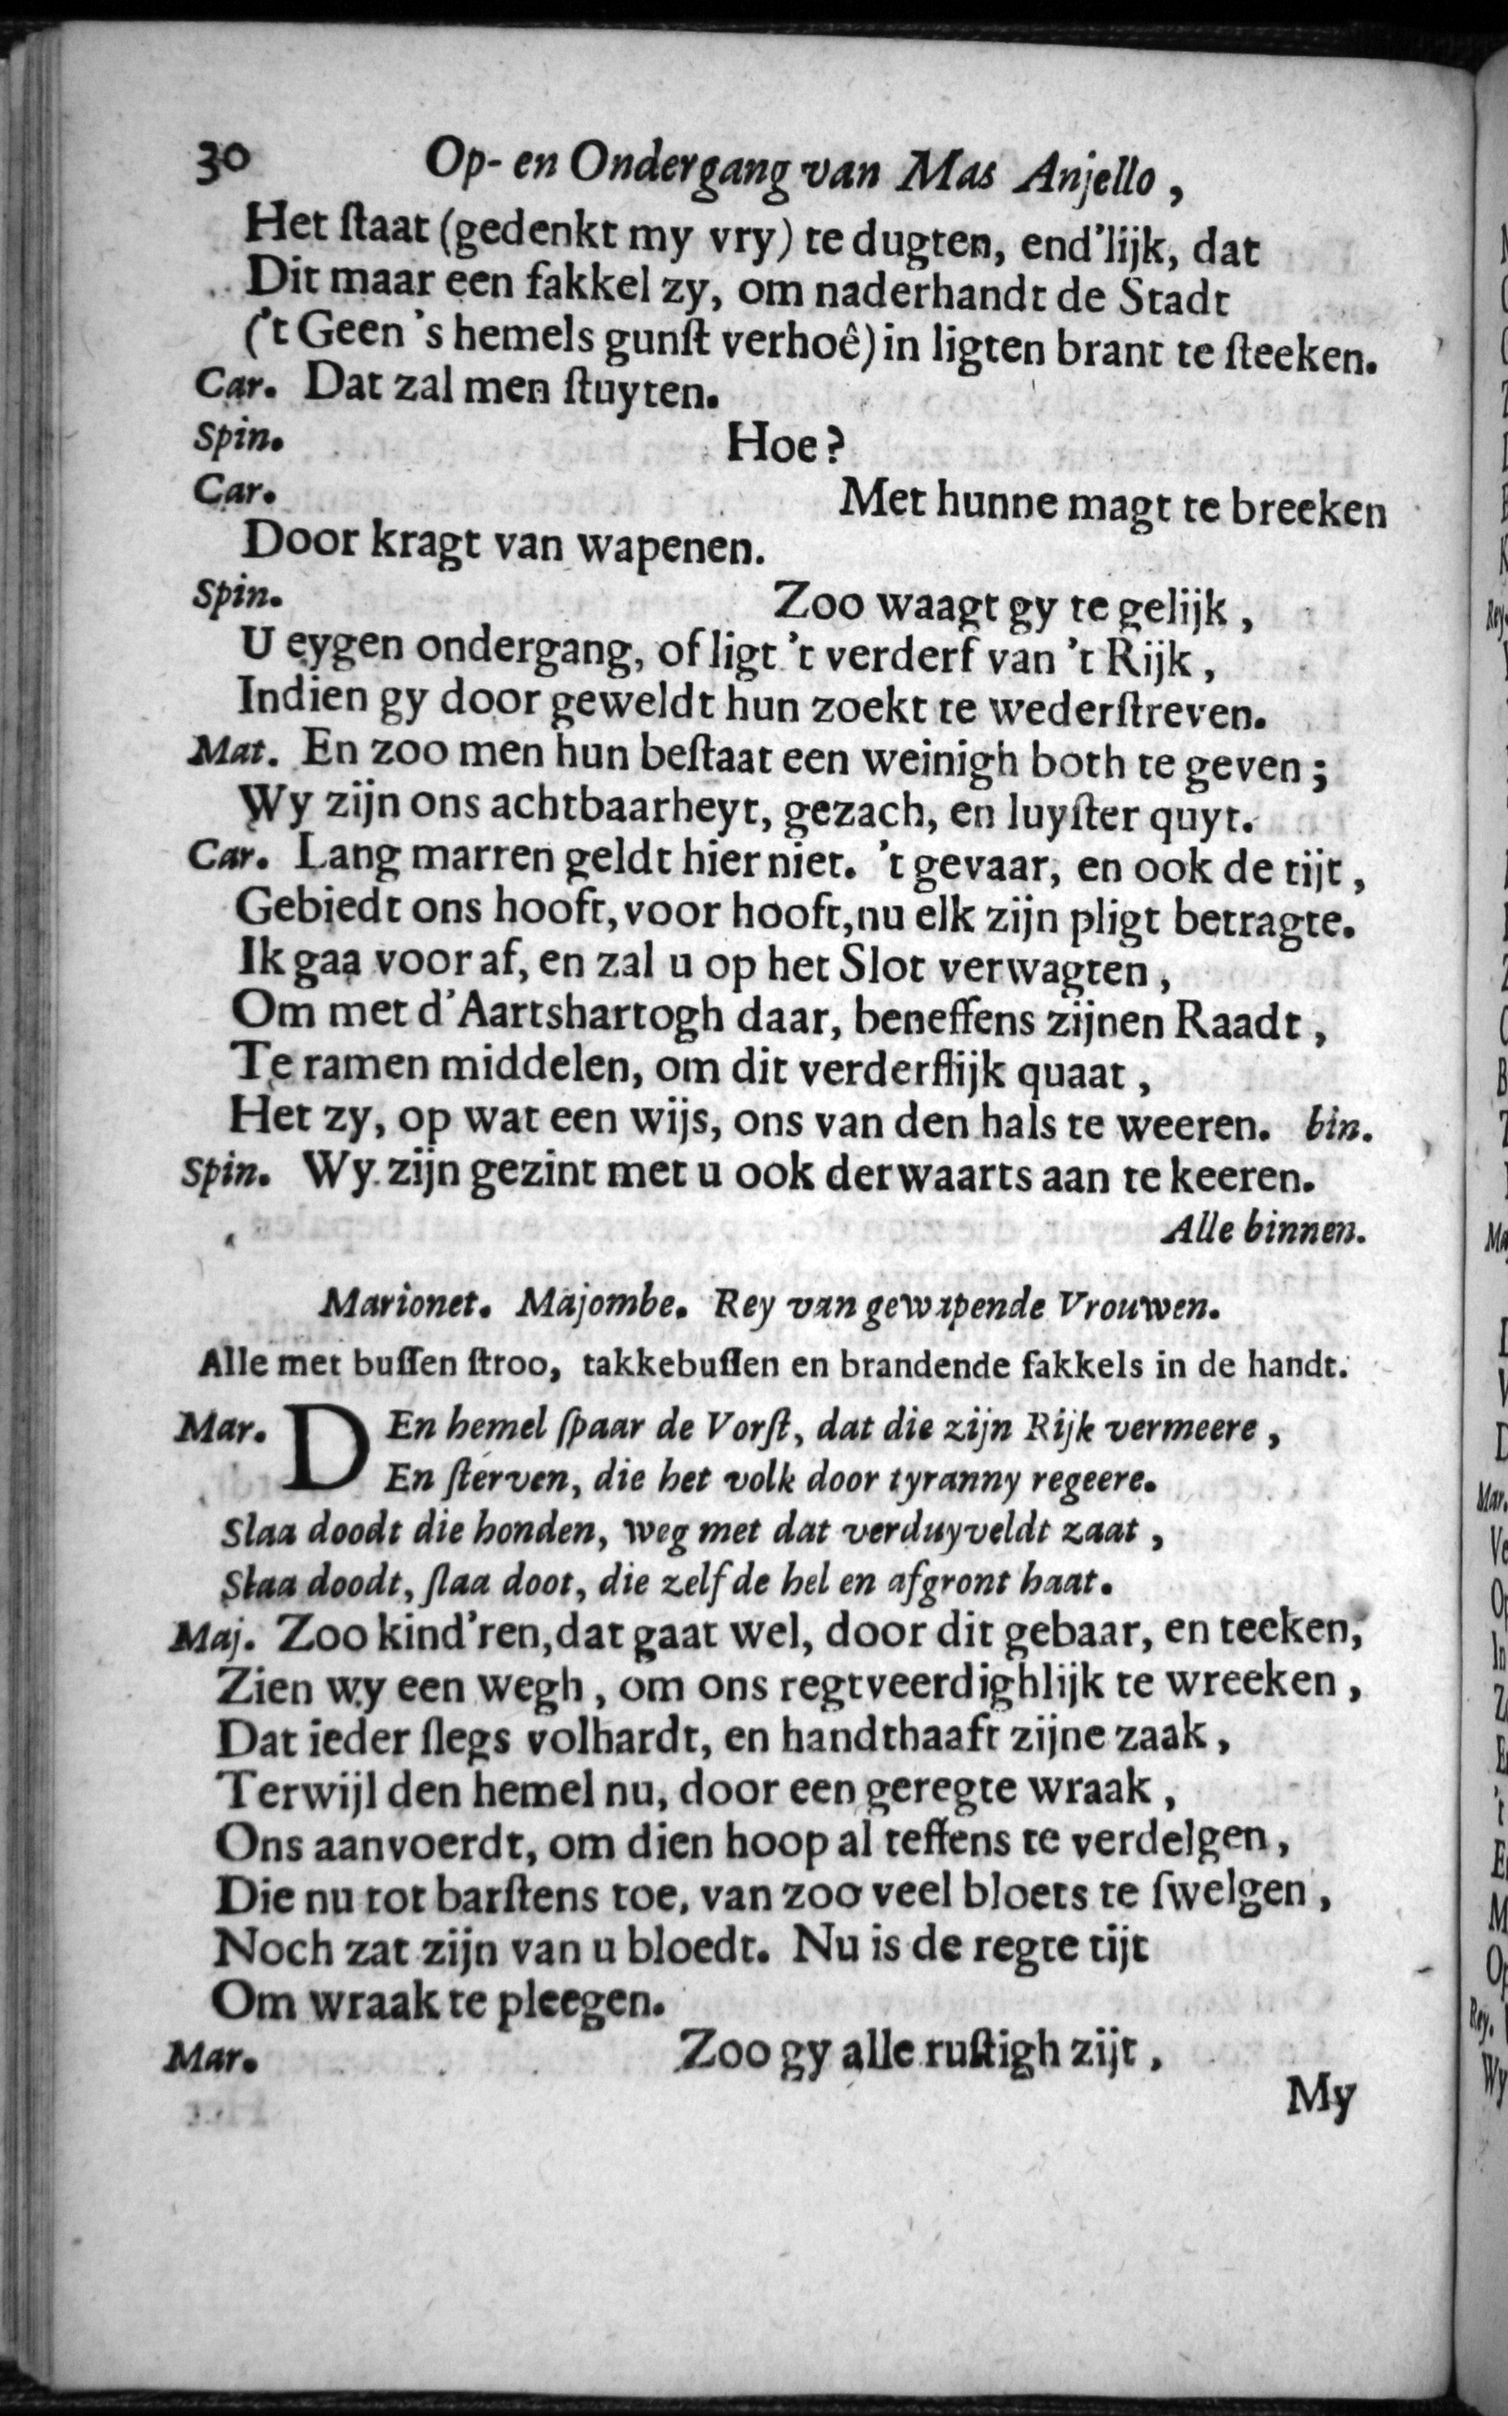 30 Op- en Ondergang van Mas Anjello,
Het ſtaat (gedenkt my vry) te dugten, end'lijk, dat
Dit maar een fakkel zy, om naderhandt de Stadt
('t Geen 's hemels gunſt verhoê) in ligten brant te ſteeken.
Car. Dat zal men ſtuyten.
Spin. Hoe?
Car. Met hunne magt te breeken
Door kragt van wapenen.
Spin. Zoo waagt gy te gelijk,
U eygen ondergang, of ligt 't verderf van 't Rijk,
Indien gy door geweldt hun zoekt te wederſtreven.
Mat. En zoo men hun beſtaat een weinigh both te geven;
Wy zijn ons achtbaarheyt, gezach, en luyſter quyt.
Car. Lang marren geldt hier niet. 't gevaar, en ook de tijt,
Gebiedt ons hooft, voor hooft, nu elk zijn pligt betragte.
Ik gaa voor af, en zal u op het Slot verwagten,
Om met d'Aartshartogh daar, beneffens zijnen Raadt,
Te ramen middelen, om dit verderflijk quaat,
Het zy, op wat een wijs, ons van den hals te weeren. bin.
Spin. Wy zijn gezint met u ook derwaarts aan te keeren.
Alle binnen.
Marionet. Majombe. Rey van gewapende Vrouwen.
Alle met buſſen ſtroo, takkebuſſen en brandende fakkels in de handt.
Mar. DEn hemel ſpaar de Vorſt, dat die zijn Rijk vermeere,
En ſterven, die het volk door tyranny regeere.
Slaa doodt die honden, weg met dat verduyveldt zaat,
Slaa doodt, ſlaa doot, die zelf de hel en afgront haat.
Maj. Zoo kind'ren, dat gaat wel, door dit gebaar, en teeken,
Zien wy een wegh, om ons regtveerdighlijk te wreeken,
Dat ieder ſlegs volhardt, en handthaaft zijne zaak,
Terwijl den hemel nu, door een geregte wraak,
Ons aanvoerdt, om dien hoop al teffens te verdelgen,
Die nu tot barſtens toe, van zoo veel bloets te ſwelgen,
Noch zat zijn van u bloedt. Nu is de regte tijt
Om wraak te pleegen.
Mar. Zoo gy alle ruſtigh zijt,
My